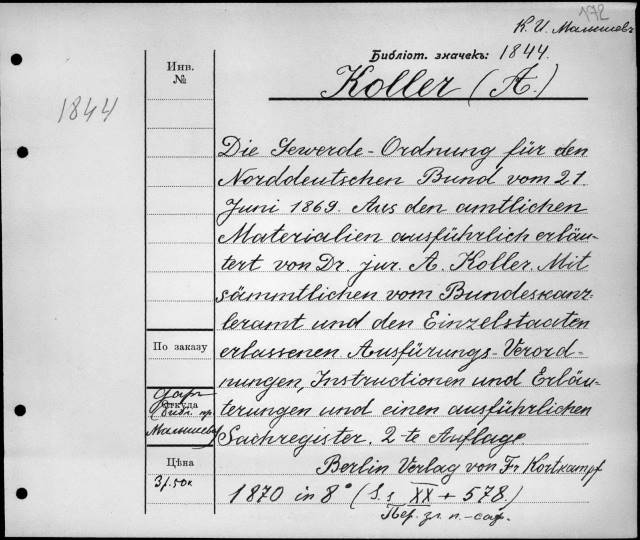 172
К. И. Малышевъ
Библіот. значекъ: 1844.
Koller (A.)
Инв.
№
1844
Die Gewerde-Ordnung für den
Norddeutschen Bund vom 21
Juni 1869. Aus den amtlichen
Materialien ausführlich erläu-
tert von Dr. jur. A. Koller. Mit
sämmtlichen vom Bundeskanz-
leramt und den Einzelstaaten
erlassenen Ausfürungs-Verord-
nungen, Instructionen und Erläu-
terungen und einen ausführlichen
Sachregister. 2-te Auflage
Berlin Verlag von Fr Kortkampf
1870 in 8° (S.s XX + 578.)
Пер. зл. п.-саф.
По заказу
Даръ
Откуда
Библ. пр.
Малышева
Цѣна
3р.50к